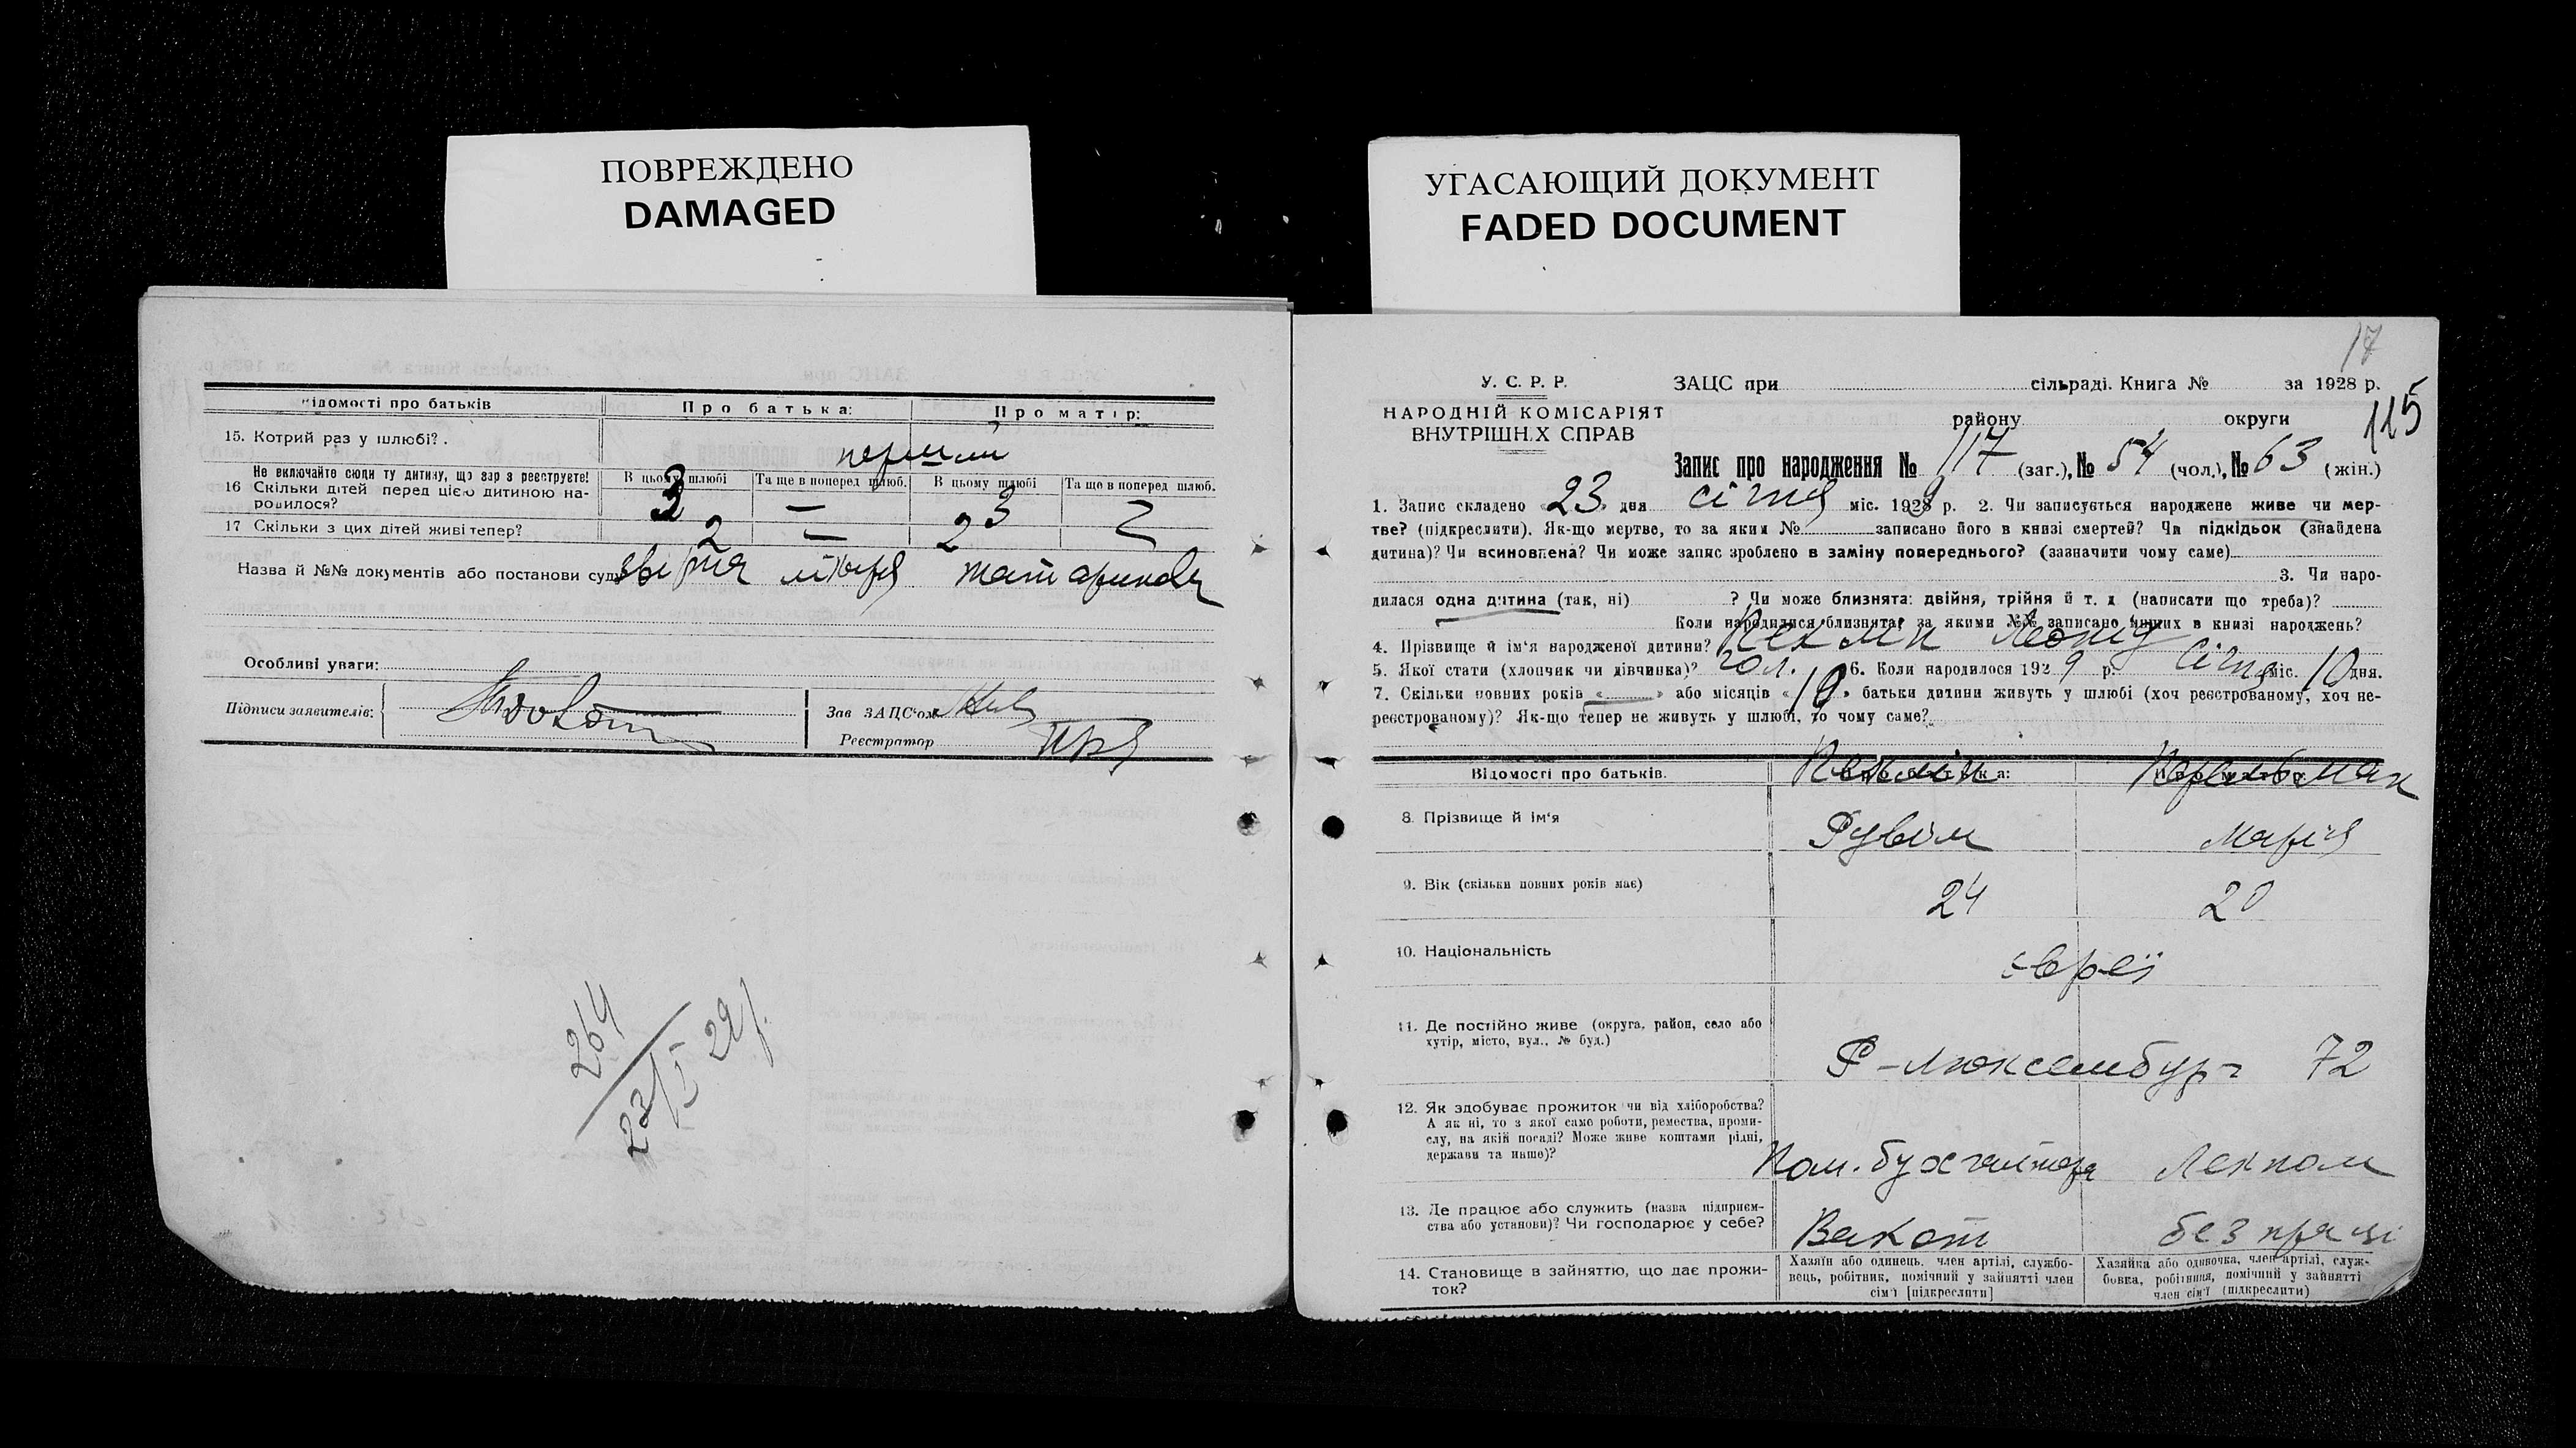 ПОВРЕЖДЕНО
DAMAGED
УГАСАЮЩИЙ ДОКУМЕНТ
FADED DOCUMENT
Відомості про батьків
Про батька:
Про матір:
15. Котрий раз у шлюбі?
перший
Не включайте сюди ту дитину, що зар з реєструєте!
16 Скільки дітей перед цією дитиною народилося?
В цьому шлюбі
Та ще в поперед шлюб.
В цьому шлюбі
Та ще в поперед шлюб.
3 — 3
17 Скільки з цих дітей живі тепер?
2 — 2
Назва й №№ документів або постанови суду
Особливі уваги:
Підписи заявителів:
Зав ЗАЦС'ом
Реєстратор
264
23/I 29р.
17
115
У. С. Р. Р.
НАРОДНІЙ КОМІСАРІЯТ
ВНУТРІШН.Х СПРАВ
ЗАЦС при сільраді. Книга № за 1928 р.
району округи
Запис про народження № 117 (заг.), № 54 (чол.), № 63 (жін.)
1. Запис складено «23» дня січня міс. 1929 р. 2. Чи записується народжене живе чи мер-
тве? (підкреслити). Як-що мертве, то за яким № записано його в книзі смертей? Чи підкідьок (знайдена
дитина)? Чи всиновлена? Чи може запис зроблено в заміну попереднього? (зазначити чому саме)
3. Чи наро-
дилася одна дитина (так, ні) ? Чи може близнята: двійня, трійня й т. д (написати що треба)?
Коли народилися близнята, за якими №№ записано інших в книзі народжень?
4. Прізвище й ім'я народженої дитини? Пекмін Леонід
5. Якої стати (хлопчик чи дівчинка)? чол. 6. Коли народилося 1929 р. січня міс. 10 дня.
7. Скільки повних років « » або місяців «10» батьки дитини живуть у шлюбі (хоч реєстрованому, хоч не-
реєстрованому)? Як-що тепер не живуть у шлюбі, то чому саме?
Відомості про батьків.
8. Прізвище й ім'я
Рувім
Марія
9. Вік (скільки повних років має)
24
20
10. Національність
євреї
11. Де постійно живе (округа, район, село або
хутір, місто, вул., № буд.)
Р-Люксембург 72
12. Як здобуває прожиток чи від хліборобства?
А як ні, то з якої само роботи, ремества, проми-
слу, на якій посаді? Може живе коштами рідні,
держави та инше)?
Пом. бухгалтера
Лекпом
13. Де працює або служить (назва підприєм-
ства або установи)? Чи господарює у себе?
Вакот
без праці
14. Становище в зайняттю, що дає прожи-
ток?
Хазяїн або одинець. член артілі, службо-
вець, робітник, помічний у зайнятті член
сім'ї [підкреслити]
Хазяйка або одиночка, член артілі, служ-
бовка, робітниця, помічний у зайнятті
член сім'ї (підкреслити)